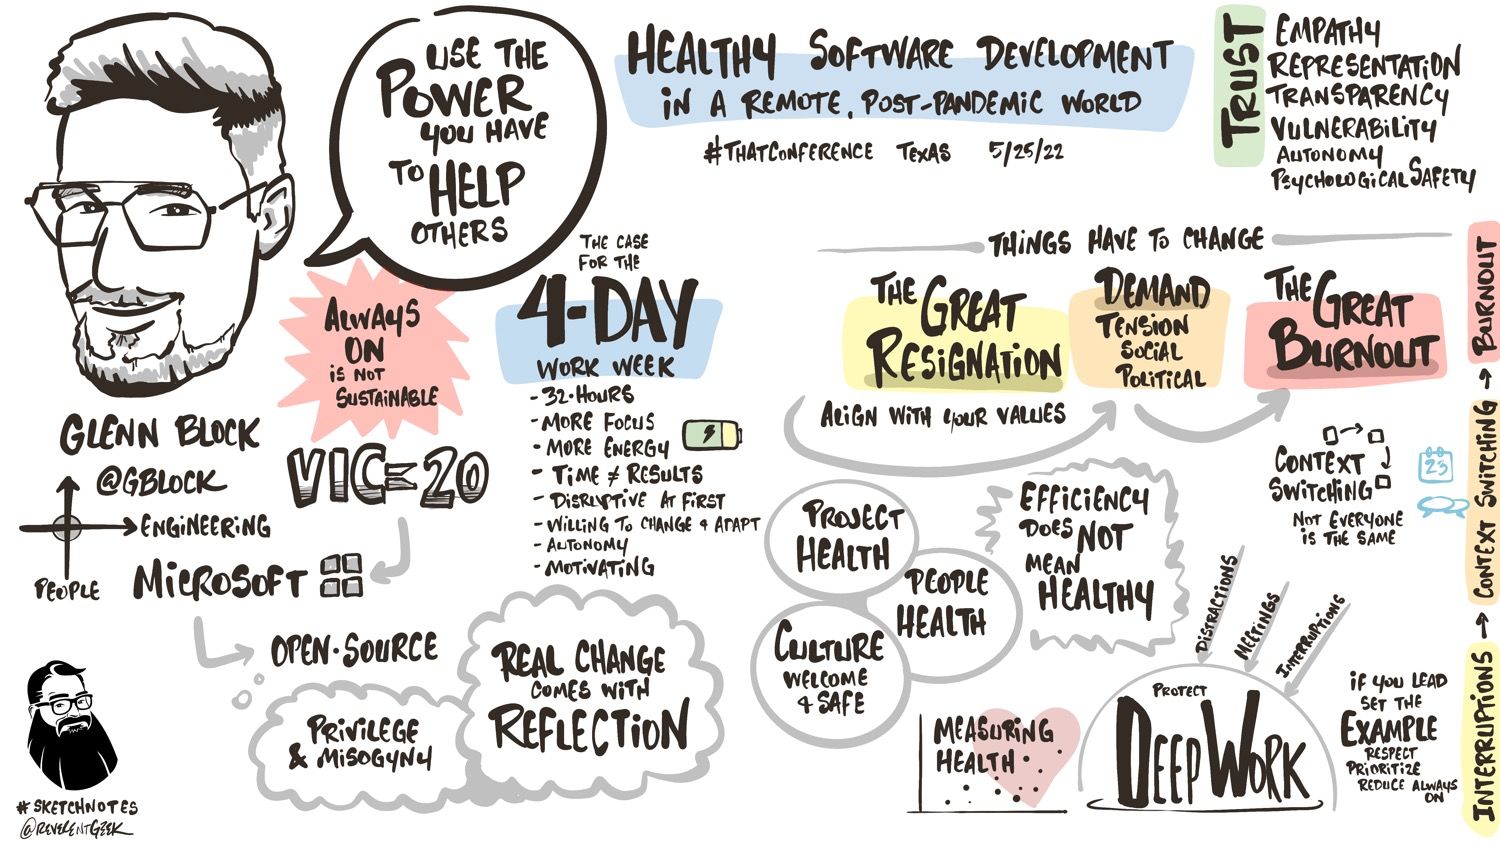 USE THE
POWER
YOU HAVE
TO HELP
OTHERS
HEALTHY SOFTWARE DEVELOPMENT
IN A REMOTE, POST-PANDEMIC WORLD
#THATCONFERENCE TEXAS 5/25/22
TRUST
EMPATHY
REPRESENTATION
TRANSPARENCY
VULNERABILITY
AUTONOMY
PSYCHOLOGICAL SAFETY
GLENN BLOCK
@GBLOCK
ENGINEERING
PEOPLE
ALWAYS
ON
IS NOT
SUSTAINABLE
VIC=20
MICROSOFT
OPEN-SOURCE
PRIVILEGE
& MISOGYNY
REAL CHANGE
COMES WITH
REFLECTION
THE CASE
FOR THE
4-DAY
WORK WEEK
- 32-HOURS
- MORE FOCUS
- MORE ENERGY
- TIME ≠ RESULTS
- DISRUPTIVE AT FIRST
- WILLING TO CHANGE & ADAPT
- AUTONOMY
- MOTIVATING
THINGS HAVE TO CHANGE
THE GREAT
RESIGNATION
ALIGN WITH YOUR VALUES
DEMAND
TENSION
SOCIAL
POLITICAL
THE GREAT
BURNOUT
PROJECT
HEALTH
PEOPLE
HEALTH
CULTURE
WELCOME
& SAFE
EFFICIENCY
DOES NOT
MEAN
HEALTHY
CONTEXT
SWITCHING
NOT EVERYONE
IS THE SAME
23
MEASURING
HEALTH
DISTRACTIONS
MEETINGS
INTERRUPTIONS
PROTECT
DEEP WORK
IF YOU LEAD
SET THE
EXAMPLE
RESPECT
PRIORITIZE
REDUCE ALWAYS
ON
INTERRUPTIONS → CONTEXT SWITCHING → BURNOUT
#SKETCHNOTES
@REVERENTGEEK